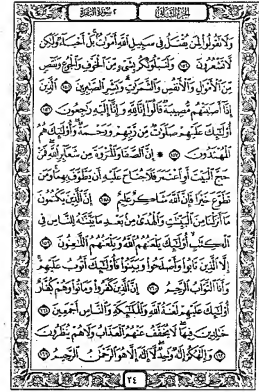 الجزء الثاني ٢ سورة البقرة
وَلَا تَقُولُوا۟ لِمَن يُقْتَلُ فِى سَبِيلِ ٱللَّهِ أَمْوَٰتٌۢ بَلْ أَحْيَآءٌ وَلَٰكِن
لَّا تَشْعُرُونَ ١٥٤ وَلَنَبْلُوَنَّكُم بِشَىْءٍ مِّنَ ٱلْخَوْفِ وَٱلْجُوعِ وَنَقْصٍ
مِّنَ ٱلْأَمْوَٰلِ وَٱلْأَنفُسِ وَٱلثَّمَرَٰتِ وَبَشِّرِ ٱلصَّٰبِرِينَ ١٥٥ ٱلَّذِينَ
إِذَآ أَصَٰبَتْهُم مُّصِيبَةٌ قَالُوٓا۟ إِنَّا لِلَّهِ وَإِنَّآ إِلَيْهِ رَٰجِعُونَ ١٥٦
أُو۟لَٰٓئِكَ عَلَيْهِمْ صَلَوَٰتٌ مِّن رَّبِّهِمْ وَرَحْمَةٌ وَأُو۟لَٰٓئِكَ هُمُ
ٱلْمُهْتَدُونَ ١٥٧ ۞ إِنَّ ٱلصَّفَا وَٱلْمَرْوَةَ مِن شَعَآئِرِ ٱللَّهِ فَمَنْ
حَجَّ ٱلْبَيْتَ أَوِ ٱعْتَمَرَ فَلَا جُنَاحَ عَلَيْهِ أَن يَطَّوَّفَ بِهِمَا وَمَن
تَطَوَّعَ خَيْرًا فَإِنَّ ٱللَّهَ شَاكِرٌ عَلِيمٌ ١٥٨ إِنَّ ٱلَّذِينَ يَكْتُمُونَ
مَآ أَنزَلْنَا مِنَ ٱلْبَيِّنَٰتِ وَٱلْهُدَىٰ مِنۢ بَعْدِ مَا بَيَّنَّٰهُ لِلنَّاسِ فِى
ٱلْكِتَٰبِ أُو۟لَٰٓئِكَ يَلْعَنُهُمُ ٱللَّهُ وَيَلْعَنُهُمُ ٱللَّٰعِنُونَ ١٥٩
إِلَّا ٱلَّذِينَ تَابُوا۟ وَأَصْلَحُوا۟ وَبَيَّنُوا۟ فَأُو۟لَٰٓئِكَ أَتُوبُ عَلَيْهِمْ
وَأَنَا ٱلتَّوَّابُ ٱلرَّحِيمُ ١٦٠ إِنَّ ٱلَّذِينَ كَفَرُوا۟ وَمَاتُوا۟ وَهُمْ كُفَّارٌ
أُو۟لَٰٓئِكَ عَلَيْهِمْ لَعْنَةُ ٱللَّهِ وَٱلْمَلَٰٓئِكَةِ وَٱلنَّاسِ أَجْمَعِينَ ١٦١
خَٰلِدِينَ فِيهَا لَا يُخَفَّفُ عَنْهُمُ ٱلْعَذَابُ وَلَا هُمْ يُنظَرُونَ
١٦٢ وَإِلَٰهُكُمْ إِلَٰهٌ وَٰحِدٌ لَّآ إِلَٰهَ إِلَّا هُوَ ٱلرَّحْمَٰنُ ٱلرَّحِيمُ ١٦٣
٢٤